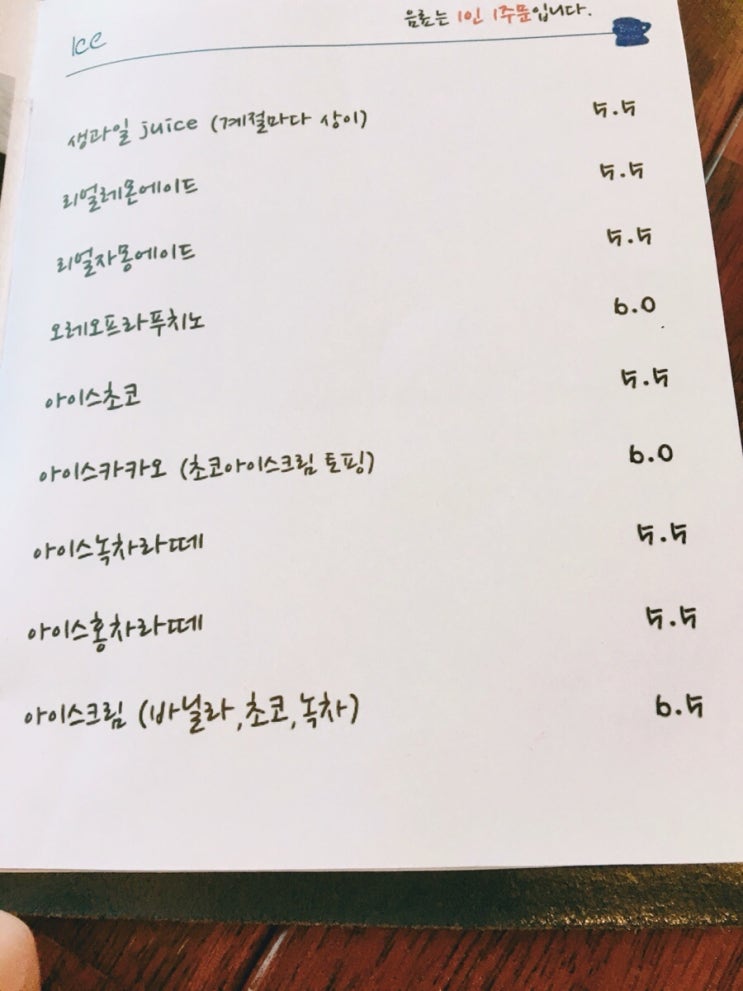 음료는 1인 1주문입니다.
Ice
생과일 juice (계절마다 상이) 5.5
리얼레몬에이드 5.5
리얼자몽에이드 5.5
오레오프라푸치노 6.0
아이스초코 5.5
아이스카카오 (초코아이스크림 토핑) 6.0
아이스녹차라떼 5.5
아이스홍차라떼 5.5
아이스크림 (바닐라,초코,녹차) 6.5